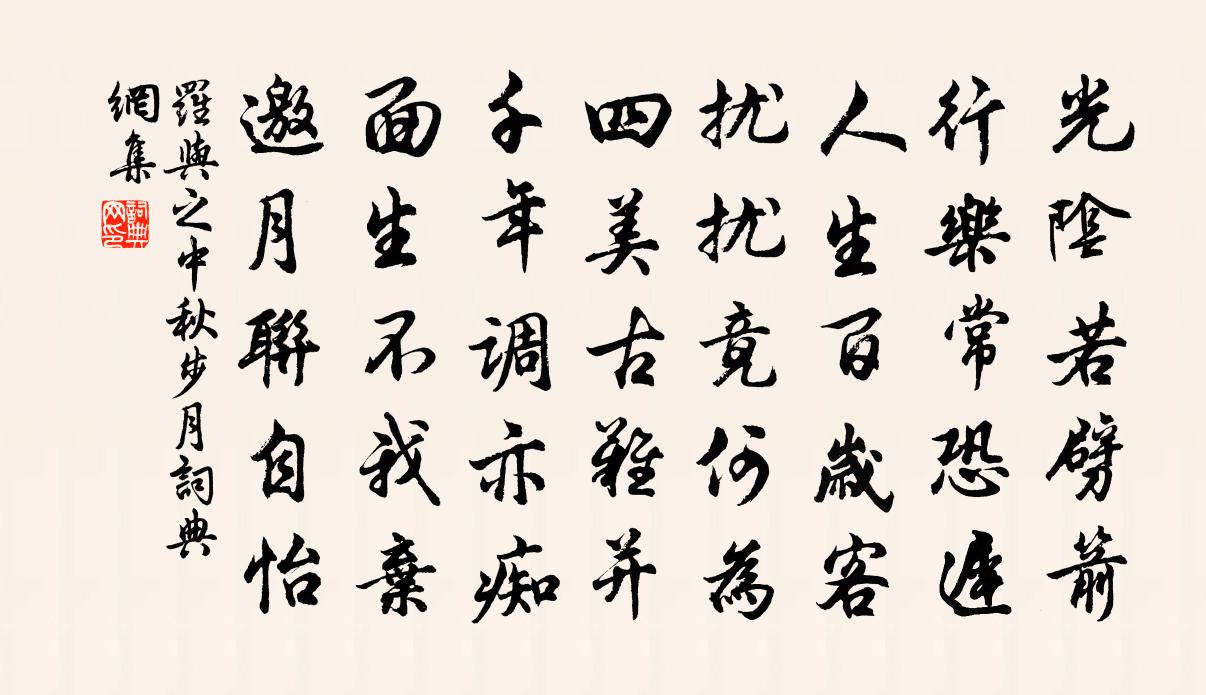 光陰若劈箭
行樂常恐遲
人生百歲客
扰扰竟何為
四美古難并
千年调亦痴
面生不我棄
邀月聯自怡
羅與之中秋步月詞典
網集
詞典
网印